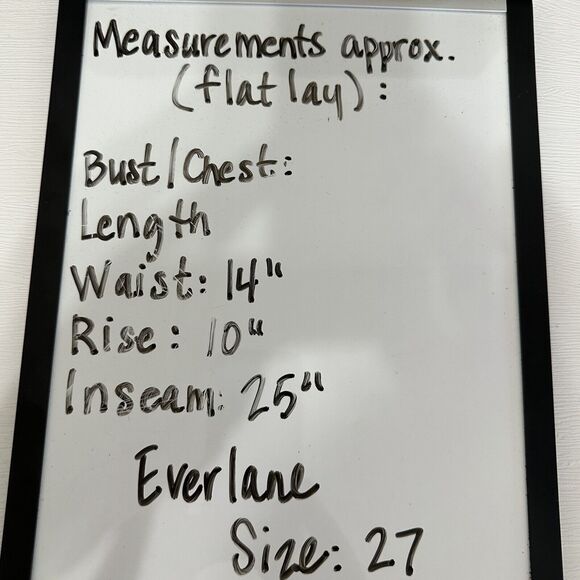 Measurements approx.
(flat lay):
Bust/Chest:
Length
Waist: 14"
Rise: 10"
Inseam: 25"
Everlane
Size: 27